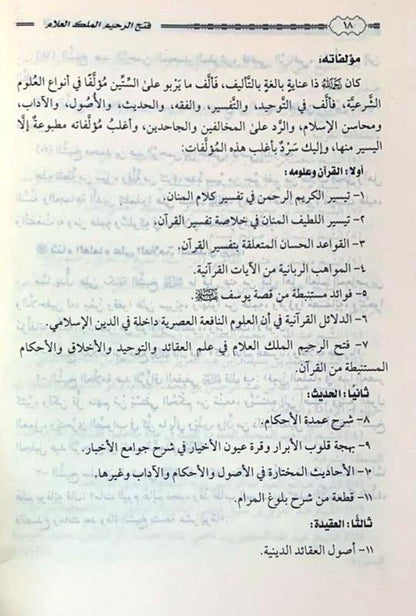 ١٨
فتح الرحيم الملك العلام
مؤلفاته:
كان رَحِمَهُ اللَّهُ ذا عنايةٍ بالغةٍ بالتَّأليف، فَألَّف ما يَربو علىٰ السِّتِّين مؤلَّفًا في أنواع العُلوم
الشَّرعيَّة، فألَّف في التَّوحيد، والتَّفسير، والفقه، والحديث، والأُصول، والآداب،
ومحاسن الإسلام، والرَّد علىٰ المخالفين والجاحدين، وأغلبُ مؤلَّفاته مطبوعةٌ إلَّا
اليسير منها، وإليك سَرْدٌ بأغلب هذه المؤلَّفات:
أولا: القرآن وعلومه:
١- تيسير الكريم الرحمن في تفسير كلام المنان.
٢- تيسير اللطيف المنان في خلاصة تفسير القرآن.
٣- القواعد الحسان المتعلقة بتفسير القرآن.
٤- المواهب الربانية من الآيات القرآنية.
٥- فوائد مستنبطة من قصة يوسف.
٦- الدلائل القرآنية في أن العلوم النافعة العصرية داخلة في الدين الإسلامي.
٧- فتح الرحيم الملك العلام في علم العقائد والتوحيد والأخلاق والأحكام
المستنبطة من القرآن.
ثانيًا: الحديث:
٨- شرح عمدة الأحكام.
٩- بهجة قلوب الأبرار وقرة عيون الأخيار في شرح جوامع الأخبار.
١٠- الأحاديث المختارة في الأصول والأحكام والآداب وغيرها.
١١- قطعة من شرح بلوغ المرام.
ثالثًا: العقيدة:
١١- أصول العقائد الدينية.